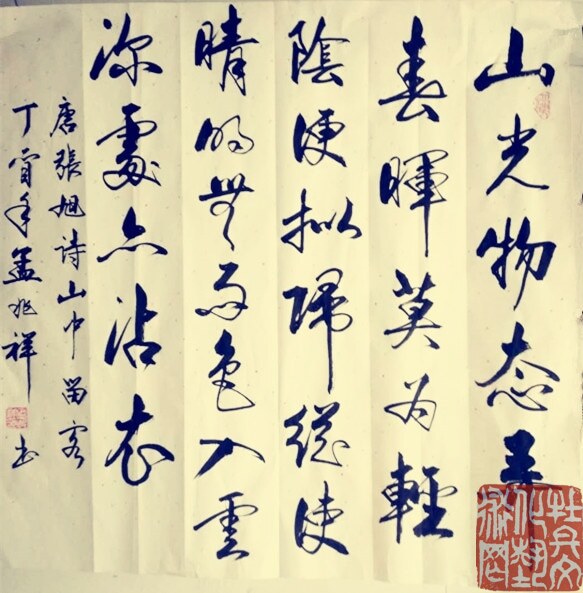 山光物态弄
春暉莫为輕
陰便拟歸縱使
晴明無雨色入雲
深處亦沾衣
唐張旭诗山中留客
丁酉年孟兆祥书